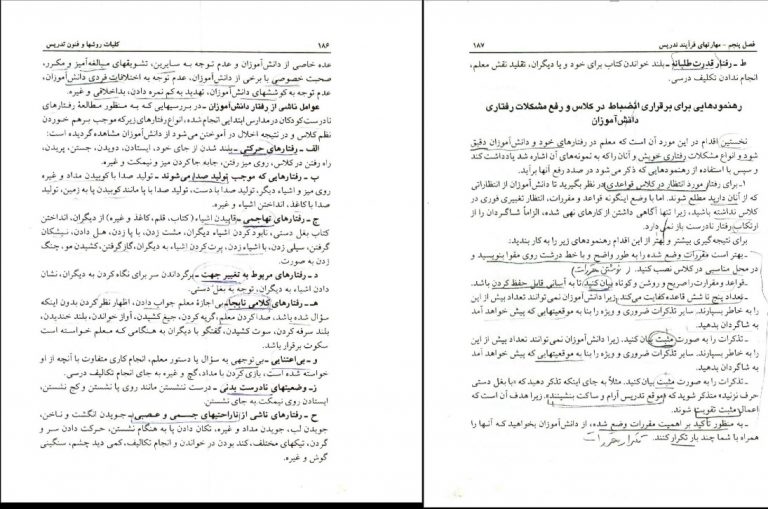 ۱۸۶ کلیات روشها و فنون تدریس
عده خاصی از دانش‌آموزان و عدم توجه به سایرین، تشویقهای مبالغه‌آمیز و مکرر،
صحبت خصوصی با برخی از دانش‌آموزان، عدم توجه به اختلافات فردی دانش‌آموزان،
عدم توجه به کوششهای دانش‌آموزان، تهدید به کم نمره دادن، بداخلاقی و غیره.
عوامل ناشی از رفتار دانش‌آموزان ـ در بررسیهایی که به منظور مطالعهٔ رفتارهای
نادرست کودکان در مدارس ابتدایی انجام شده، انواع رفتارهای زیر که موجب برهم خوردن
نظم کلاس و در نتیجه اخلال در آموختن می‌شود از دانش‌آموزان مشاهده گردیده است:
الف ـ رفتارهای حرکتی ـ بلند شدن از جای خود، ایستادن، دویدن، جستن، پریدن،
راه رفتن در کلاس، روی میز رفتن، جابه‌جا کردن میز و نیمکت و غیره.
ب ـ رفتارهایی که موجب تولید صدا می‌شوند ـ تولید صدا با کوبیدن مداد و غیره
روی میز و اشیاء دیگر، تولید صدا با دست، تولید صدا با پا مانند کوبیدن پا به زمین، تولید
صدا با کاغذ، انداختن اشیاء و غیره.
ج ـ رفتارهای تهاجمی ـ قاپیدن اشیاء (کتاب، قلم، کاغذ و غیره) از دیگران، انداختن
کتاب بغل دستی، نابود کردن اشیاء دیگران، مشت زدن، با پا زدن، هل دادن، نیشگان
گرفتن، سیلی زدن، با اشیاء زدن، پرت کردن اشیاء به دیگران، گاز گرفتن، کشیدن مو، چنگ
زدن به صورت.
د ـ رفتارهای مربوط به تغییر جهت ـ برگرداندن سر برای نگاه کردن به دیگران، نشان
دادن اشیاء به دیگران، توجه به بغل دستی.
هـ ـ رفتارهای کلامی نابجا ـ بی‌اجازهٔ معلم جواب دادن، اظهار نظر کردن بدون اینکه
سؤال شده باشد، صدا کردن معلم، گریه کردن، جیغ کشیدن، آواز خواندن، بلند خندیدن،
بلند سرفه کردن، سوت کشیدن، گفتگو با دیگران به هنگامی که معلم خواسته است
سکوت برقرار باشد.
و ـ بی‌اعتنایی ـ بی‌توجهی به سؤال یا دستور معلم، انجام کاری متفاوت با آنچه از او
خواسته شده است، بازی کردن با مداد، گچ و غیره به جای انجام تکالیف درسی.
ز ـ وضعیتهای نادرست بدنی ـ درست ننشستن مانند روی پا نشستن و کج نشستن،
ایستادن روی نیمکت به جای نشستن.
ح ـ رفتارهای ناشی از ناراحتیهای جسمی و عصبی ـ جویدن انگشت و ناخن،
جویدن لب، جویدن مداد و غیره، تکان دادن پا به هنگام نشستن، حرکت دادن سر و
گردن، تیکهای مختلف، کند بودن در خواندن و انجام تکالیف، کمی دید چشم، سنگینی
گوش و غیره.
فصل پنجم - مهارتهای فرآیند تدریس ۱۸۷
ط ـ رفتار قدرت طلبانه ـ بلند خواندن کتاب برای خود و یا دیگران، تقلید نقش معلم،
انجام ندادن تکلیف درسی.
رهنمودهایی برای برقراری انضباط در کلاس و رفع مشکلات رفتاری
دانش‌آموزان
نخستین اقدام در این مورد آن است که معلم در رفتارهای خود و دانش‌آموزان دقیق
شود و انواع مشکلات رفتاری خویش و آنان را که به نمونه‌های آن اشاره شد یادداشت کند
و سپس با استفاده از رهنمودهایی که ذکر می‌شود در صدد رفع آنها برآید.
۱ـ برای رفتار مورد انتظار در کلاس قواعدی در نظر بگیرید تا دانش‌آموزان از انتظاراتی
که از آنان دارید مطلع شوند. اما با وضع اینگونه قواعد و مقررات، انتظار تغییری فوری در
کلاس نداشته باشید، زیرا تنها آگاهی داشتن از کارهای نهی شده، الزاماً شاگردان را از
ارتکاب رفتار نادرست باز نمی‌دارد.
برای نتیجه‌گیری بیشتر و بهتر از این اقدام رهنمودهای زیر را به کار بندید:
ـ بهتر است مقررات وضع شده را به طور واضح و با خط درشت روی مقوا بنویسید و
در محل مناسبی در کلاس نصب کنید. (نوشتن مقررات)
ـ قواعد و مقررات را صریح و روشن و کوتاه بیان کنید تا به آسانی قابل حفظ کردن باشد.
ـ تعداد پنج تا شش قاعده کفایت می‌کند زیرا دانش‌آموزان نمی‌توانند تعداد بیش از این
را به خاطر بسپارند. سایر تذکرات ضروری و ویژه را بنا به موقعیتهایی که پیش خواهد آمد
به شاگردان بدهید.
ـ تذکرات را به صورت مثبت بیان کنید. زیرا دانش‌آموزان نمی‌توانند تعداد بیش از این
را به خاطر بسپارند. سایر تذکرات ضروری و ویژه را بنا به موقعیتهایی که پیش خواهد آمد
به شاگردان بدهید.
ـ تذکرات را به صورت مثبت بیان کنید. مثلاً به جای اینکه تذکر دهید که «با بغل دستی
حرف نزنید» متذکر شوید که «موقع تدریس آرام و ساکت بنشینید» زیرا هدف آن است که
اعمال مثبت تقویت شوند.
ـ به منظور تأکید بر اهمیت مقررات وضع شده، از دانش‌آموزان بخواهید که آنها را
همراه با شما چند بار تکرار کنند. تکرار مقررات